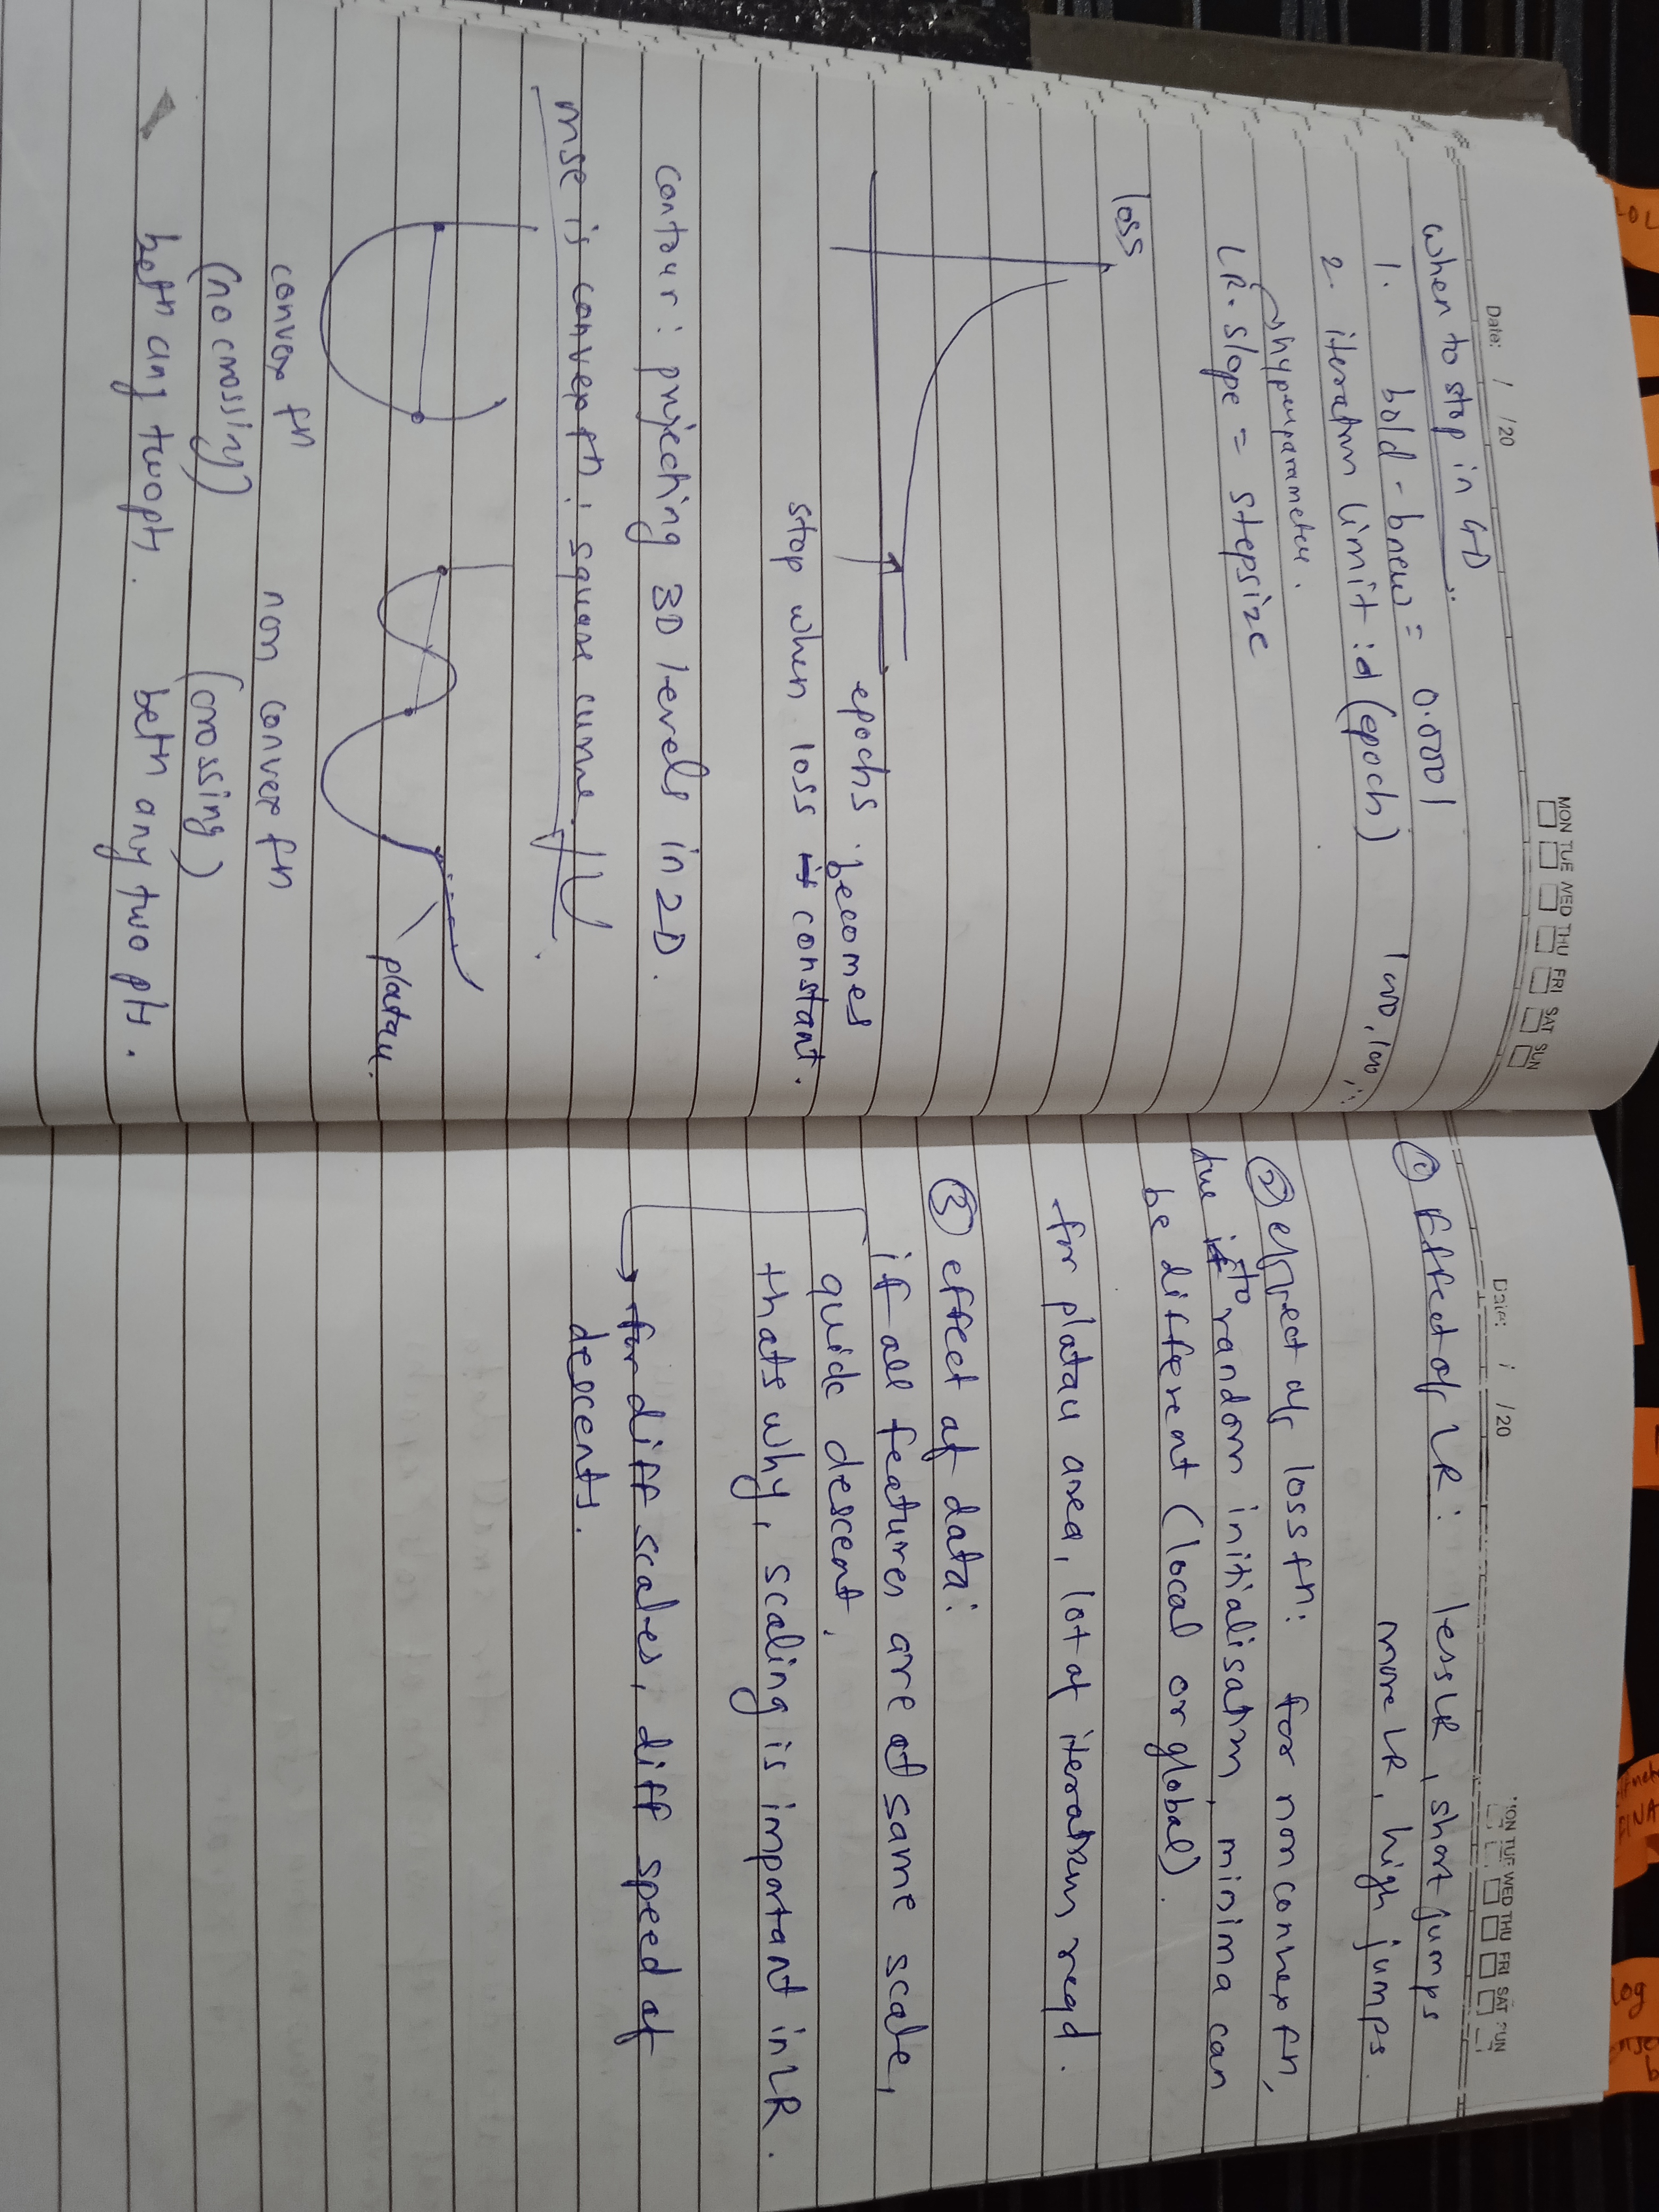 Date: / /20
MON TUE WED THU FRI SAT SUN
when to stop in GD
1. bold - bnew = 0.0001
2. iteration limit : d (epoch) 100, 100,
hyperparameter.
LR. slope = stepsize
loss
epochs
becomes
stop when loss constant.
contour : projecting 3D levels in 2D.
mse is convex fn : square curve.
platau.
convex fn
non convex fn
(no crossing)
(crossing)
betn any two pts.
betn any two pts.
Date: / /20
MON TUE WED THU FRI SAT SUN
① Effect of LR : less LR, short jumps
more LR, high jumps
② effect of loss fn: for non convex fn,
due to random initialisation, minima can
be different (local or global).
for platau area, lot of iteration reqd.
③ effect of data:
if all features are of same scale,
quick descent.
thats why, scaling is important in LR.
for diff scales, diff speed of
descents.
OL
FINA
log
b